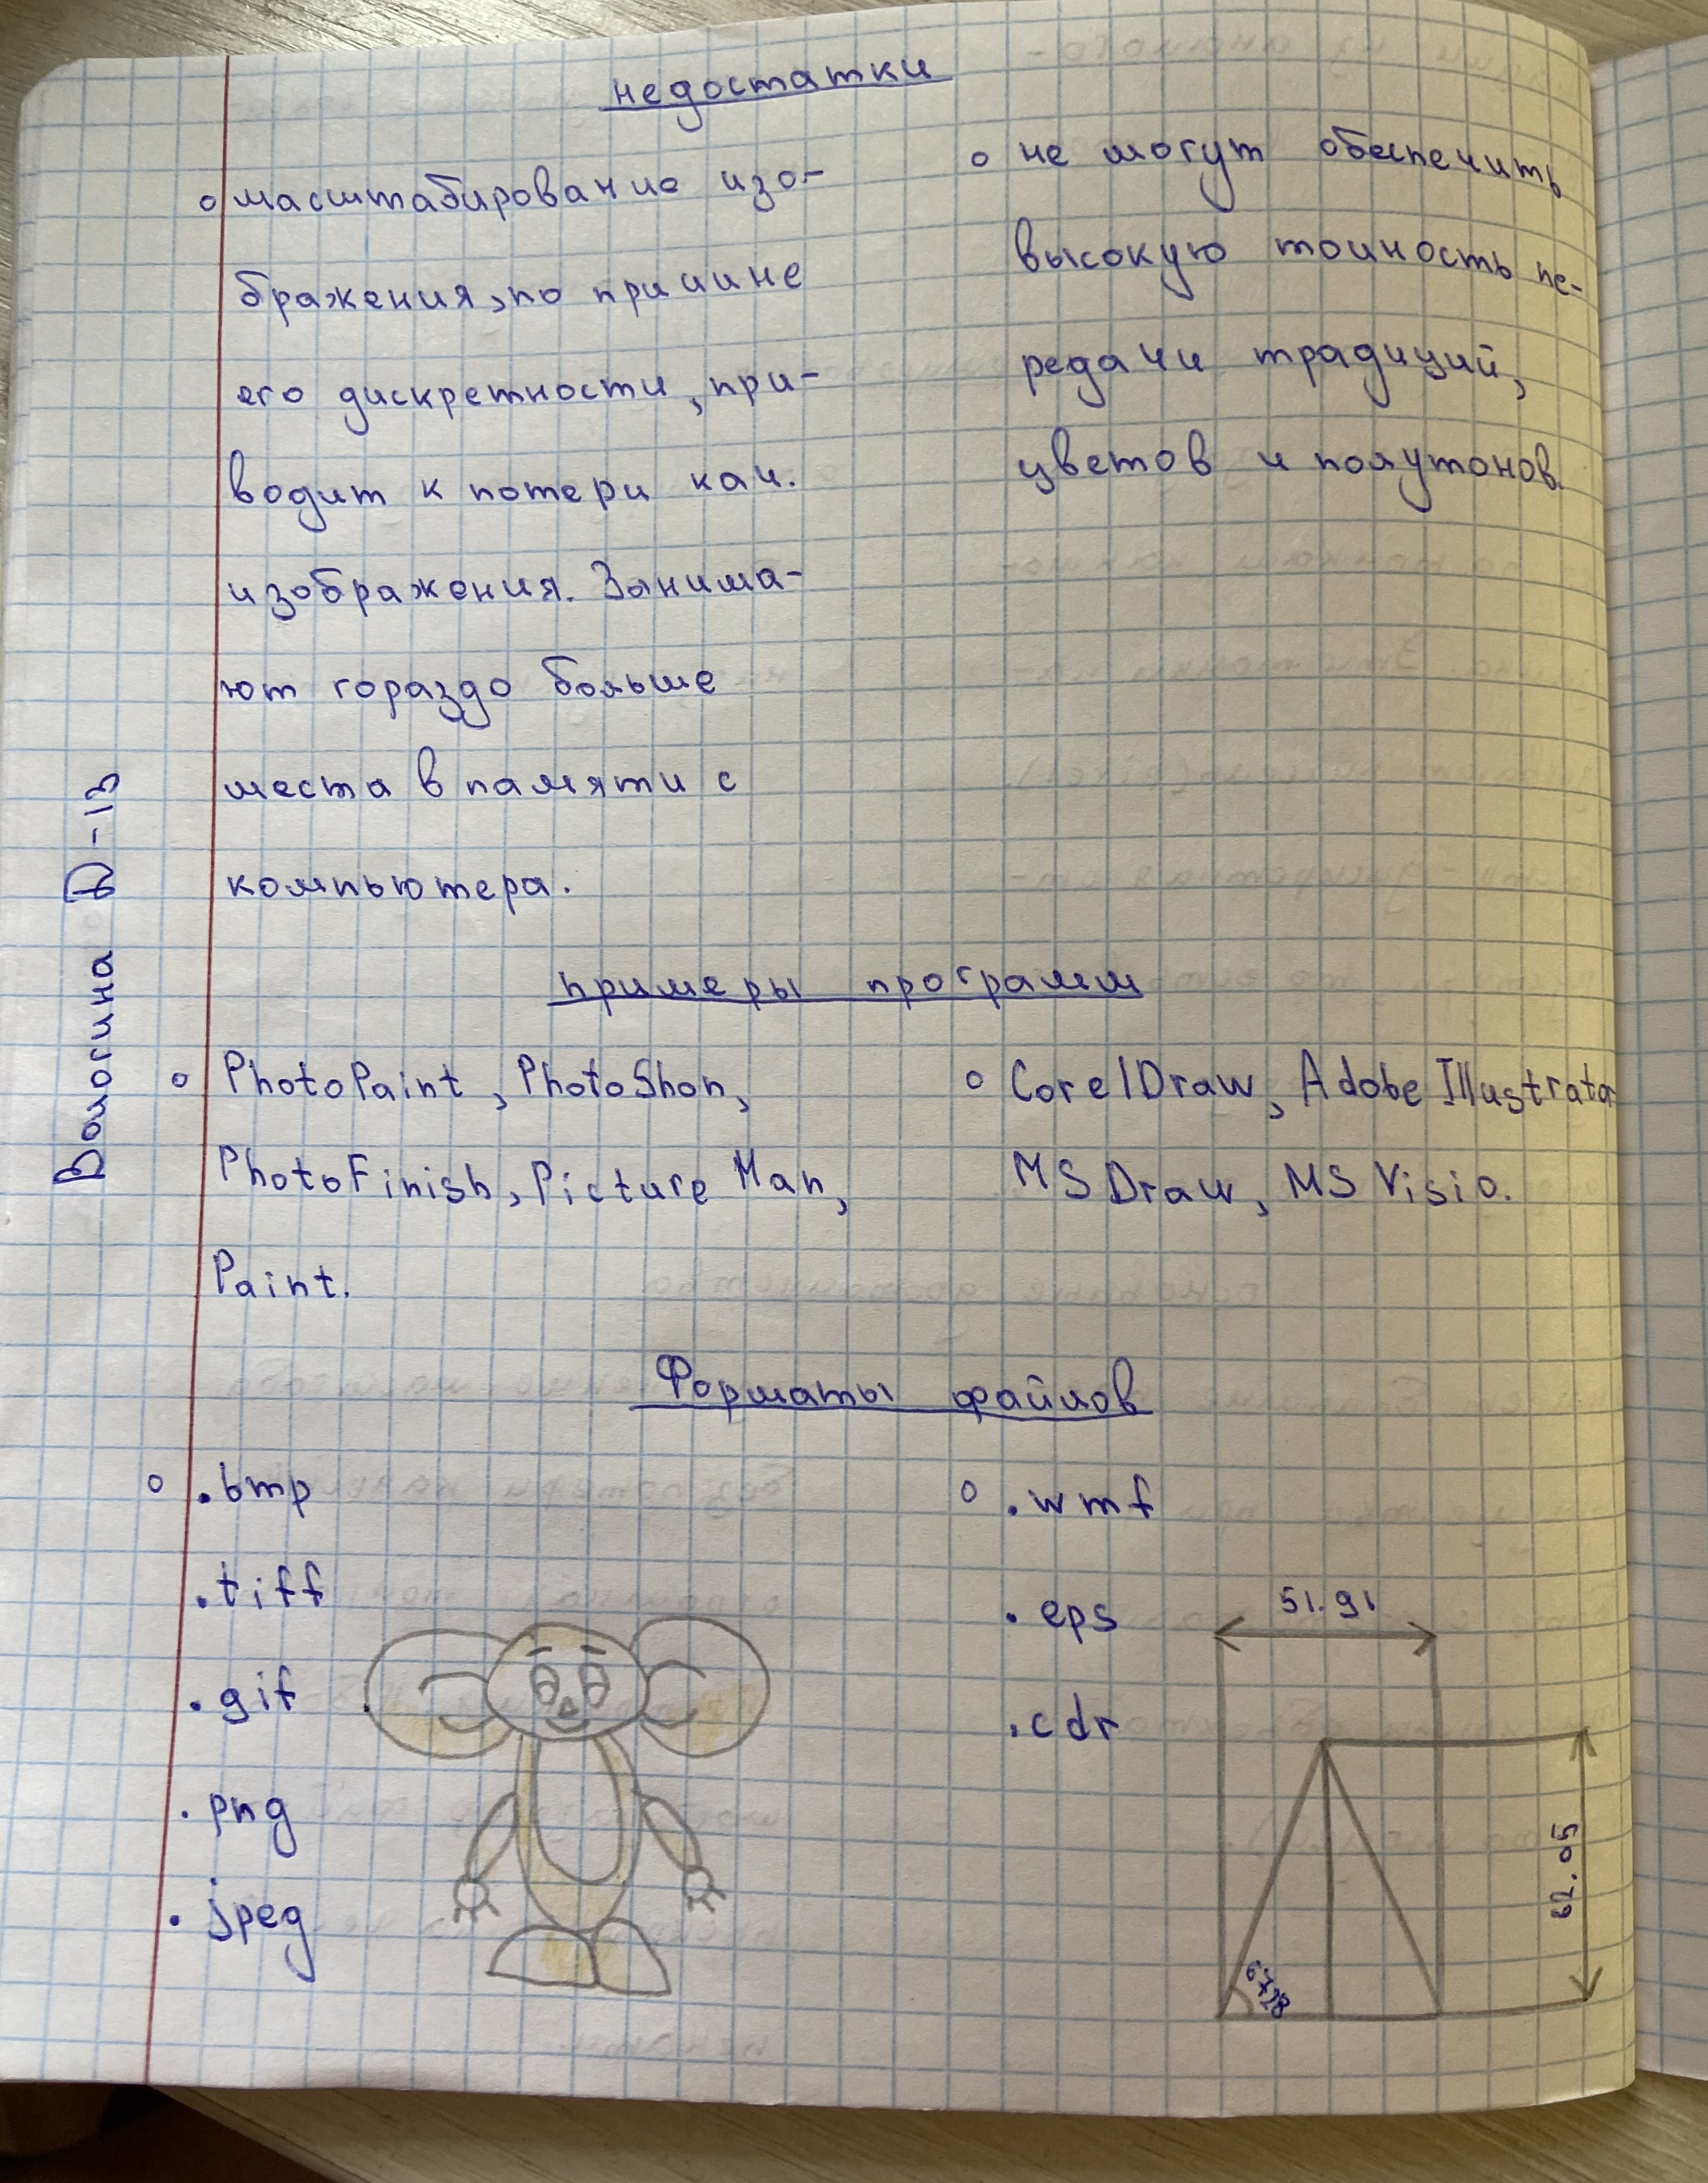 недостатки
○ масштабирование изо-
бражения, по причине
его дискретности, при-
водит к потери кач.
изображения. Занима-
ют гораздо больше
места в памяти с
компьютера.
○ не могут обеспечить
высокую точность пе-
редачи традиций,
цветов и полутонов.
примеры программ
○ PhotoPaint, PhotoShop,
PhotoFinish, Picture Man,
Paint.
○ CorelDraw, Adobe Illustrator
MS Draw, MS Visio.
Форматы файлов
○ .bmp
.tiff
.gif
.png
.jpeg
○ .wmf
.eps
.cdr
51.91
62.05
Д-13